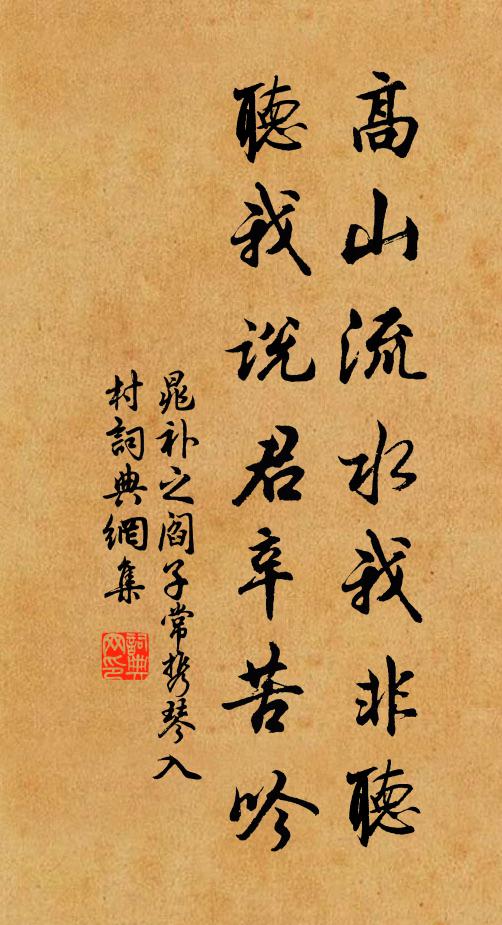 高山流水我非聽
聽我説君辛苦吟
晁补之阎子常携琴入
村詞典網集
詞典網印